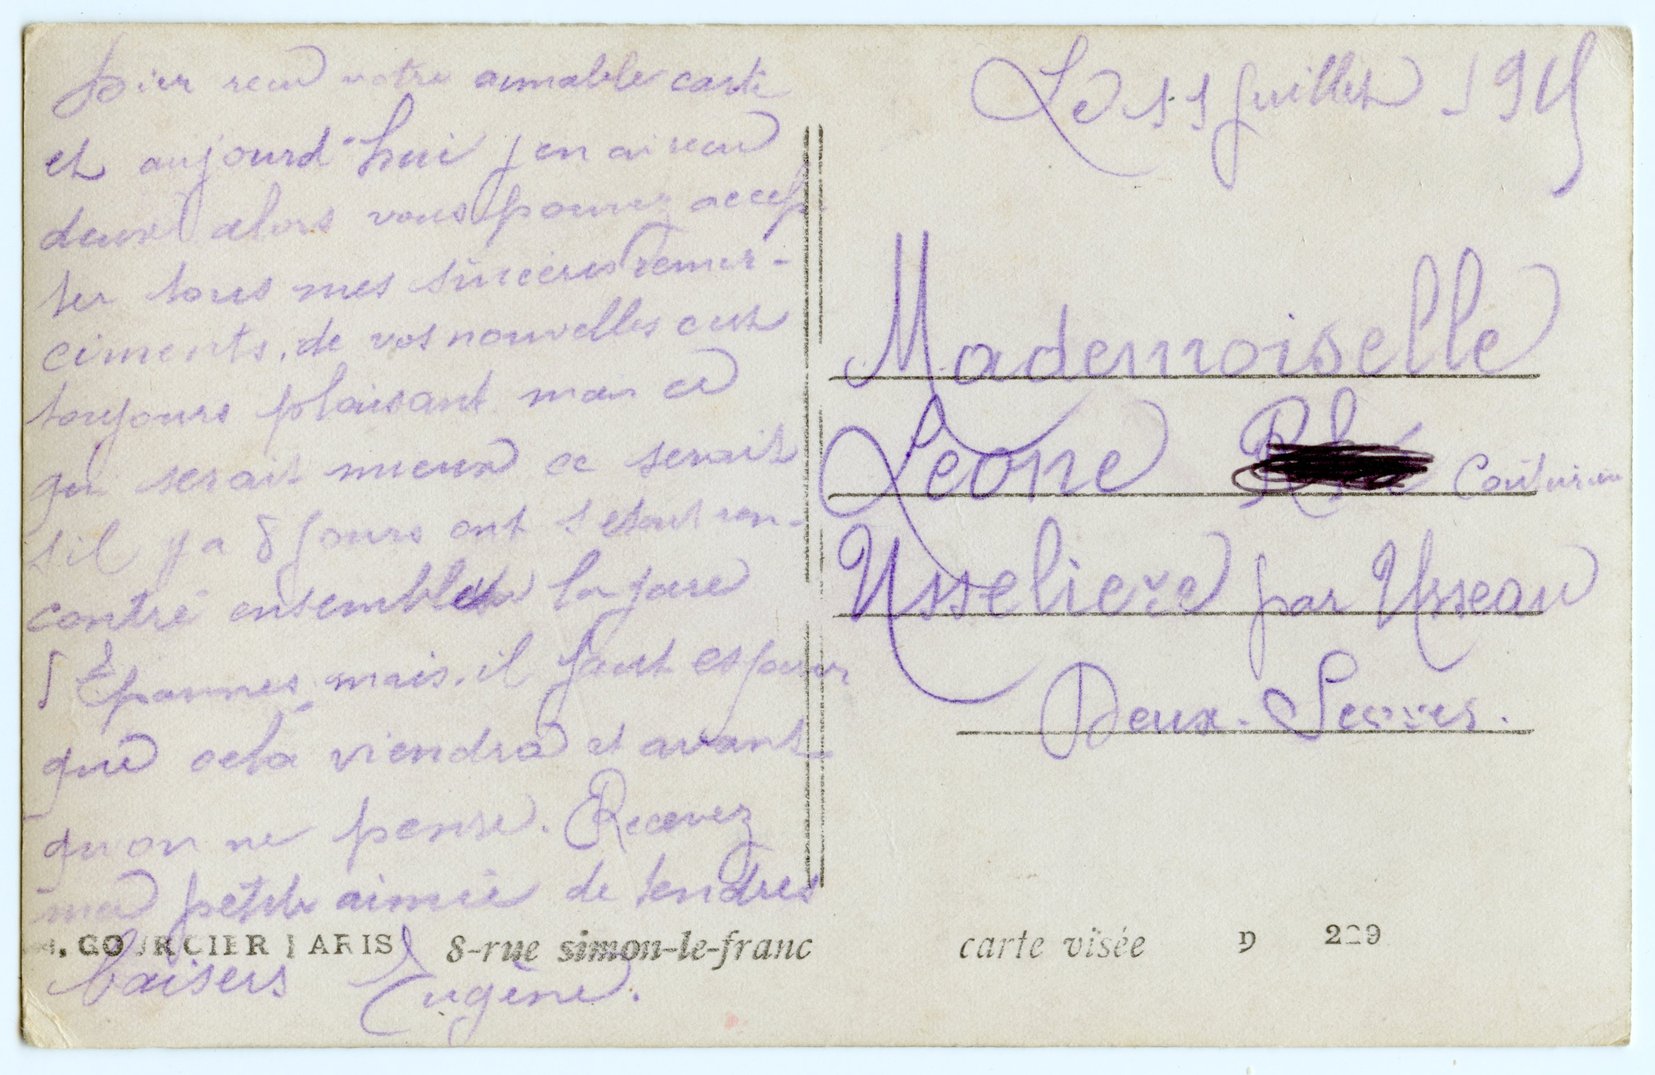 bien recu votre aimable carte
et aujourd'hui j en ai recu
deux alors vous pouvez accep
ter tous mes sincères remer-
ciments. de vos nouvelles cest
toujours plaisant mais ce
qui serait mieux ce serait
sil y a 8 jours ont s etait ren-
contré ensemble a la gare
d Epannes mais. il faut esperer
que cela viendra et avant
quon ne pense. Recevez
ma petite aimée de tendres
baisers Eugène.
Le 11 Juillet 1915
Mademoiselle
Leone
Usseliere par Usseau
Deux-Sevres.
H. GOURCIER PARIS 8-rue simon-le-franc
carte visée n 229